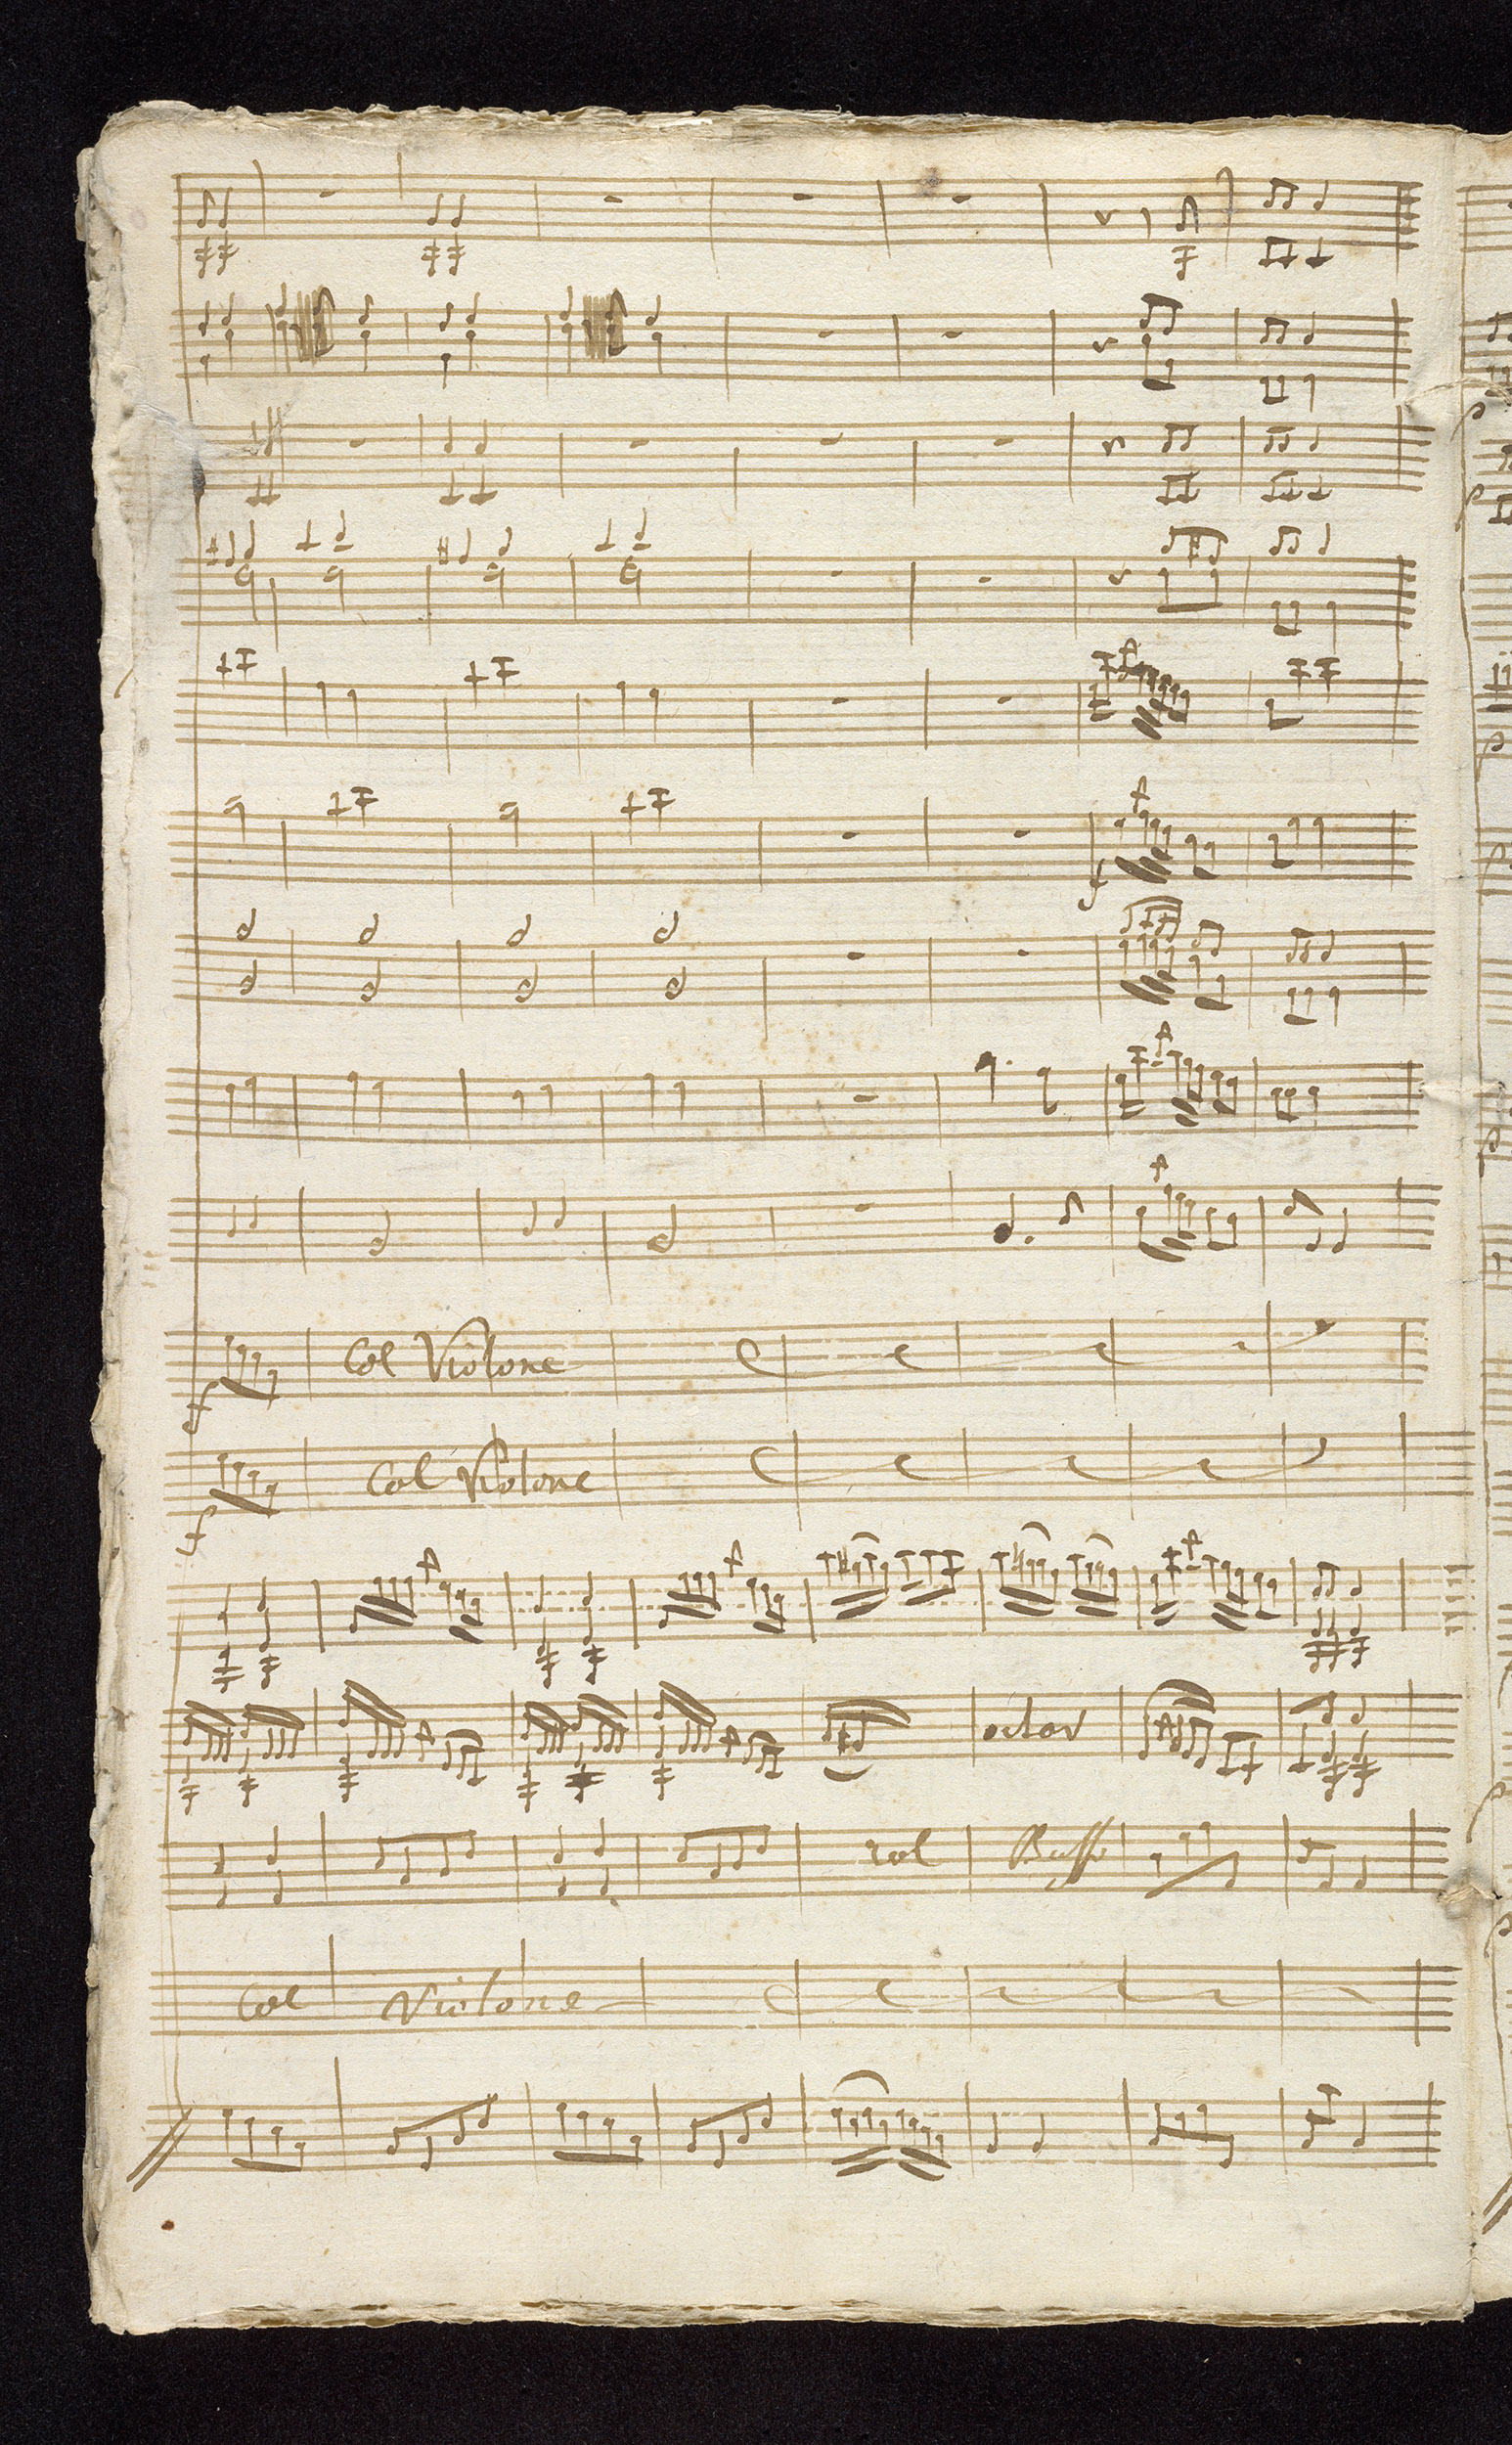 f
Col Violone
f
Col Violone
f
octav
col Basso
Col Violone